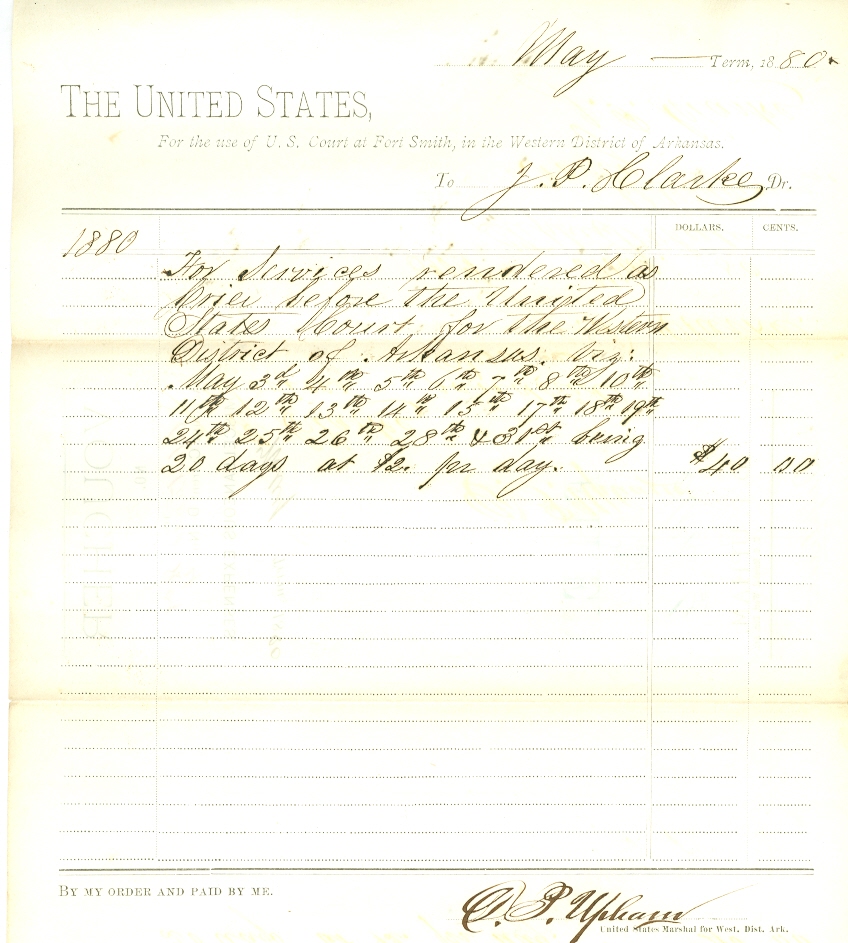 May — Term, 1880.
THE UNITED STATES,
For the use of U. S. Court at Fort Smith, in the Western District of Arkansas.
To J. P. Clarke, Dr.
DOLLARS. CENTS.
1880
For Services rendered as
Crier before the United
States Court for the Western
District of Arkansas. Viz:
May 3d 4th 5th 6th 7th 8th 10th
11th 12th 13th 14th 15th 17th 18th 19th
24th 25th 26th 28th & 31st being
20 days at $2. pr day. $40 00
BY MY ORDER AND PAID BY ME.
D. P. Upham
United States Marshal for West. Dist. Ark.